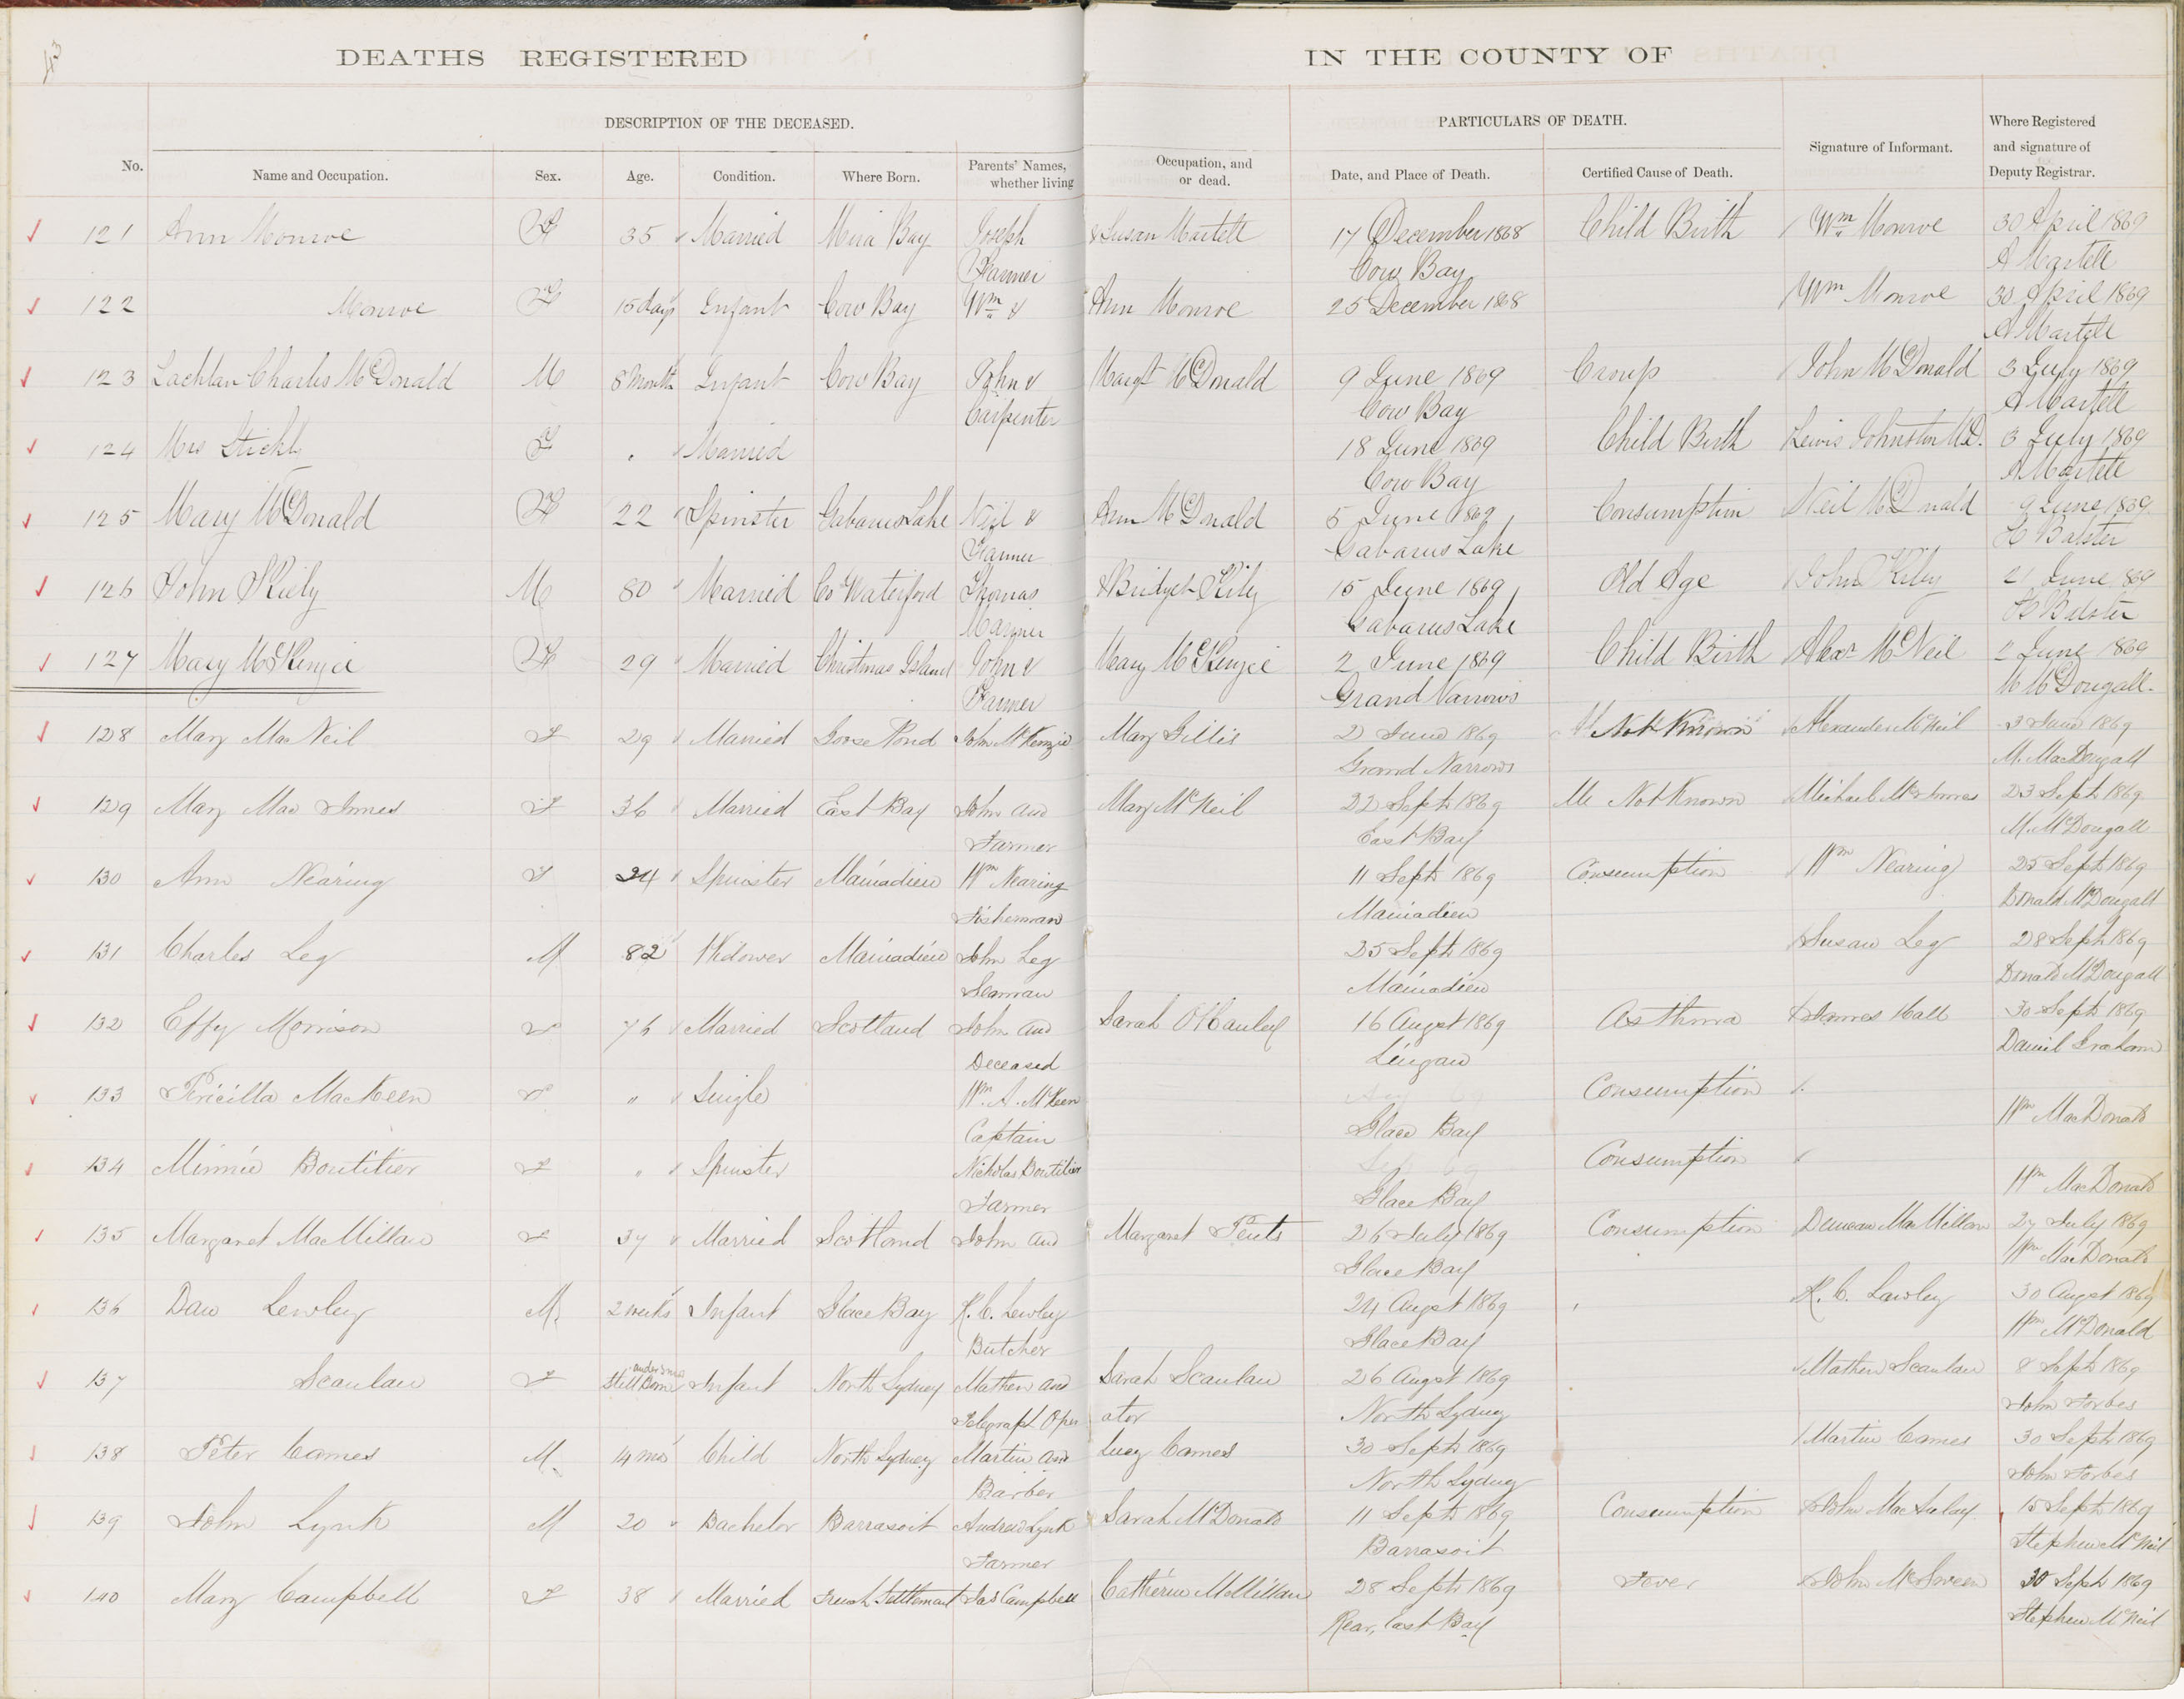 43
DEATHS REGISTERED IN THE COUNTY OF
DESCRIPTION OF THE DECEASED. PARTICULARS OF DEATH.
No. Name and Occupation. Sex. Age. Condition. Where Born. Parents' Names, whether living Occupation, and or dead. Date, and Place of Death. Certified Cause of Death. Signature of Informant. Where Registered and signature of Deputy Registrar.
121 Ann Monroe F 35 Married Mira Bay Joseph & Susan Martell 17 December 1868 Child Birth Wm Monroe 30 April 1869
Farmer Cow Bay A Martell
122 Monroe F 15 days Infant Cow Bay Wm & Ann Monroe 25 December 1868 Wm Monroe 30 April 1869
A Martell
123 Lachlan Charles McDonald M 8 Month Infant Cow Bay John & Margt McDonald 9 June 1869 Croup John McDonald 3 July 1869
Carpenter Cow Bay A Martell
124 Mrs F Married 18 June 1869 Child Birth Lewis Johnston M.D. 3 July 1869
Cow Bay A Martell
125 Mary McDonald F 22 Spinster Gabarus Lake Neil & Ann McDonald 5 June 1869 Consumption Neil McDonald 9 June 1869
Farmer Gabarus Lake
126 John Kiely M 80 Married Co Waterford Thomas & Bridget Kiley 15 June 1869 Old Age John Kiley 21 June 1869
Gabarus Lake
127 Mary McKenzie F 29 Married Christmas Island John & Mary McKenzie 2 June 1869 Child Birth Alexr McNeil 2 June 1869
Farmer Grand Narrows M McDougall
128 Mary MacNeil F 29 Married Goose Pond John McKenzie Mary Gillis 2 June 1869 Not Known Alexander McNeil 3 June 1869
Grand Narrows M. MacDougall
129 Mary Mac Innes F 36 Married East Bay John and Mary McNeil 22 Sept 1869 Not Known Michael McInnes 23 Sept 1869
Farmer East Bay M. McDougall
130 Ann Nearing F 24 Spinster Mainadieu Wm Nearing 11 Sept 1869 Consumption Wm Nearing 25 Sept 1869
Fisherman Mainadieu Donald McDougall
131 Charles Leg M 82 Widower Mainadieu John Leg 25 Sept 1869 Susan Leg 28 Sept 1869
Seaman Mainadieu Donald McDougall
132 Effy Morrison F 76 Married Scotland John and Sarah O'Hanley 16 Augst 1869 Asthma James Hall 30 Sept 1869
Deceased Lingan Daniel Graham
133 Pricilla MacKeen F " Single Wm. A. McKeen Consumption
Captain Glace Bay Wm MacDonald
134 Minnie Boutilier F " Spinster Nicholas Boutilier Consumption
Farmer Glace Bay Wm MacDonald
135 Margaret MacMillan F 37 Married Scotland John and Margaret 26 July 1869 Consumption Duncan MacMillan 27 July 1869
Glace Bay Wm MacDonald
136 Dan Lewley M. 2 weeks Infant Glace Bay K. C. Lewley 24 Augst 1869 K. C. Lawley 30 Augst 1869
Butcher Glace Bay Wm McDonald
137 Scanlan F Still Born Infant North Sydney Mathew and Sarah Scanlan 26 Augst 1869 Mathew Scanlan 8 Sept 1869
Telegraph Operator North Sydney John Forbes
138 Peter Carnes M. 14 mos Child North Sydney Martin and Lucy Carnes 30 Sept 1869 Martin Carnes 30 Sept 1869
Barber North Sydney John Forbes
139 John Lynk M 20 Bachelor Barrasoit Andrew Lynk Sarah McDonald 11 Sept 1869 Consumption John MacAulay 15 Sept 1869
Farmer Barrasoit Stephen McNeil
140 Mary Campbell F 38 Married French Settlement Jas Campbell Catherine McMillan 28 Sept 1869 Fever John McSween 30 Sept 1869
Rear, East Bay Stephen McNeil